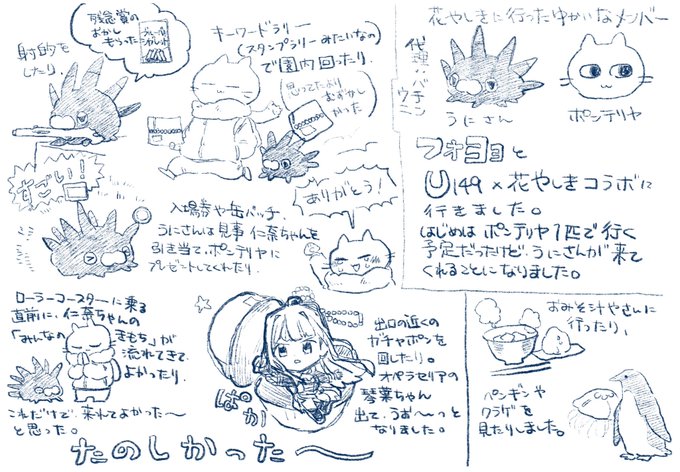 花やしきに行ったゆかいなメンバー
代理:バチュン
ウチュー
うにさん
ポンデリヤ
フォヨヨと
U149×花やしきコラボに
行きました。
はじめは ポンデリヤ1匹で行く
予定だったけど、うにさんが来て
くれることになりました。
射的を
したり、
残念賞の
おかし
もらった
キーワードラリー
(スタンプラリーみたいなの)
で園内回ったり、
思ってたより
むずかし
かった
すごい!!
ありがとう!
入場券や缶バッチ、
うにさんは見事 仁奈ちゃんを
引き当て、ポンデリヤに
プレゼントしてくれたり、
ローラーコースターに乗る
直前に、仁奈ちゃんの
「みんなのきもち」が
流れてきて
よかったり、
これだけで、来れてよかった〜
と思った。
ぱかっ
出口の近くの
ガチャポンを
回したり。
オペラセリアの
琴葉ちゃん
出て、うお〜〜っと
なりました。
たのしかった〜
おみそ汁やさんに
行ったり、
ペンギンや
クラゲを
見たりしました。